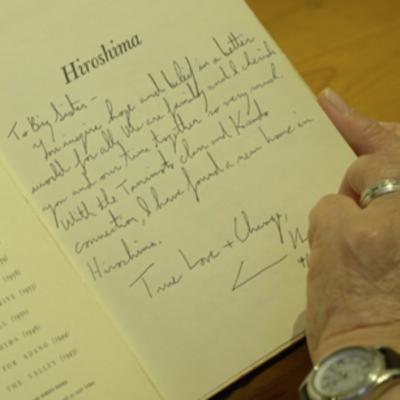 Hiroshima
To Big Sister -
You inspire hope and belief in a better
world for all. We are family and I cherish
you and our time together so very much.
With the Tanimoto clan and Kondo
connection, I have found a new home in
Hiroshima.
True Love + Change,
(1946)
FOR ADANO (1944)
THE VALLEY (1943)